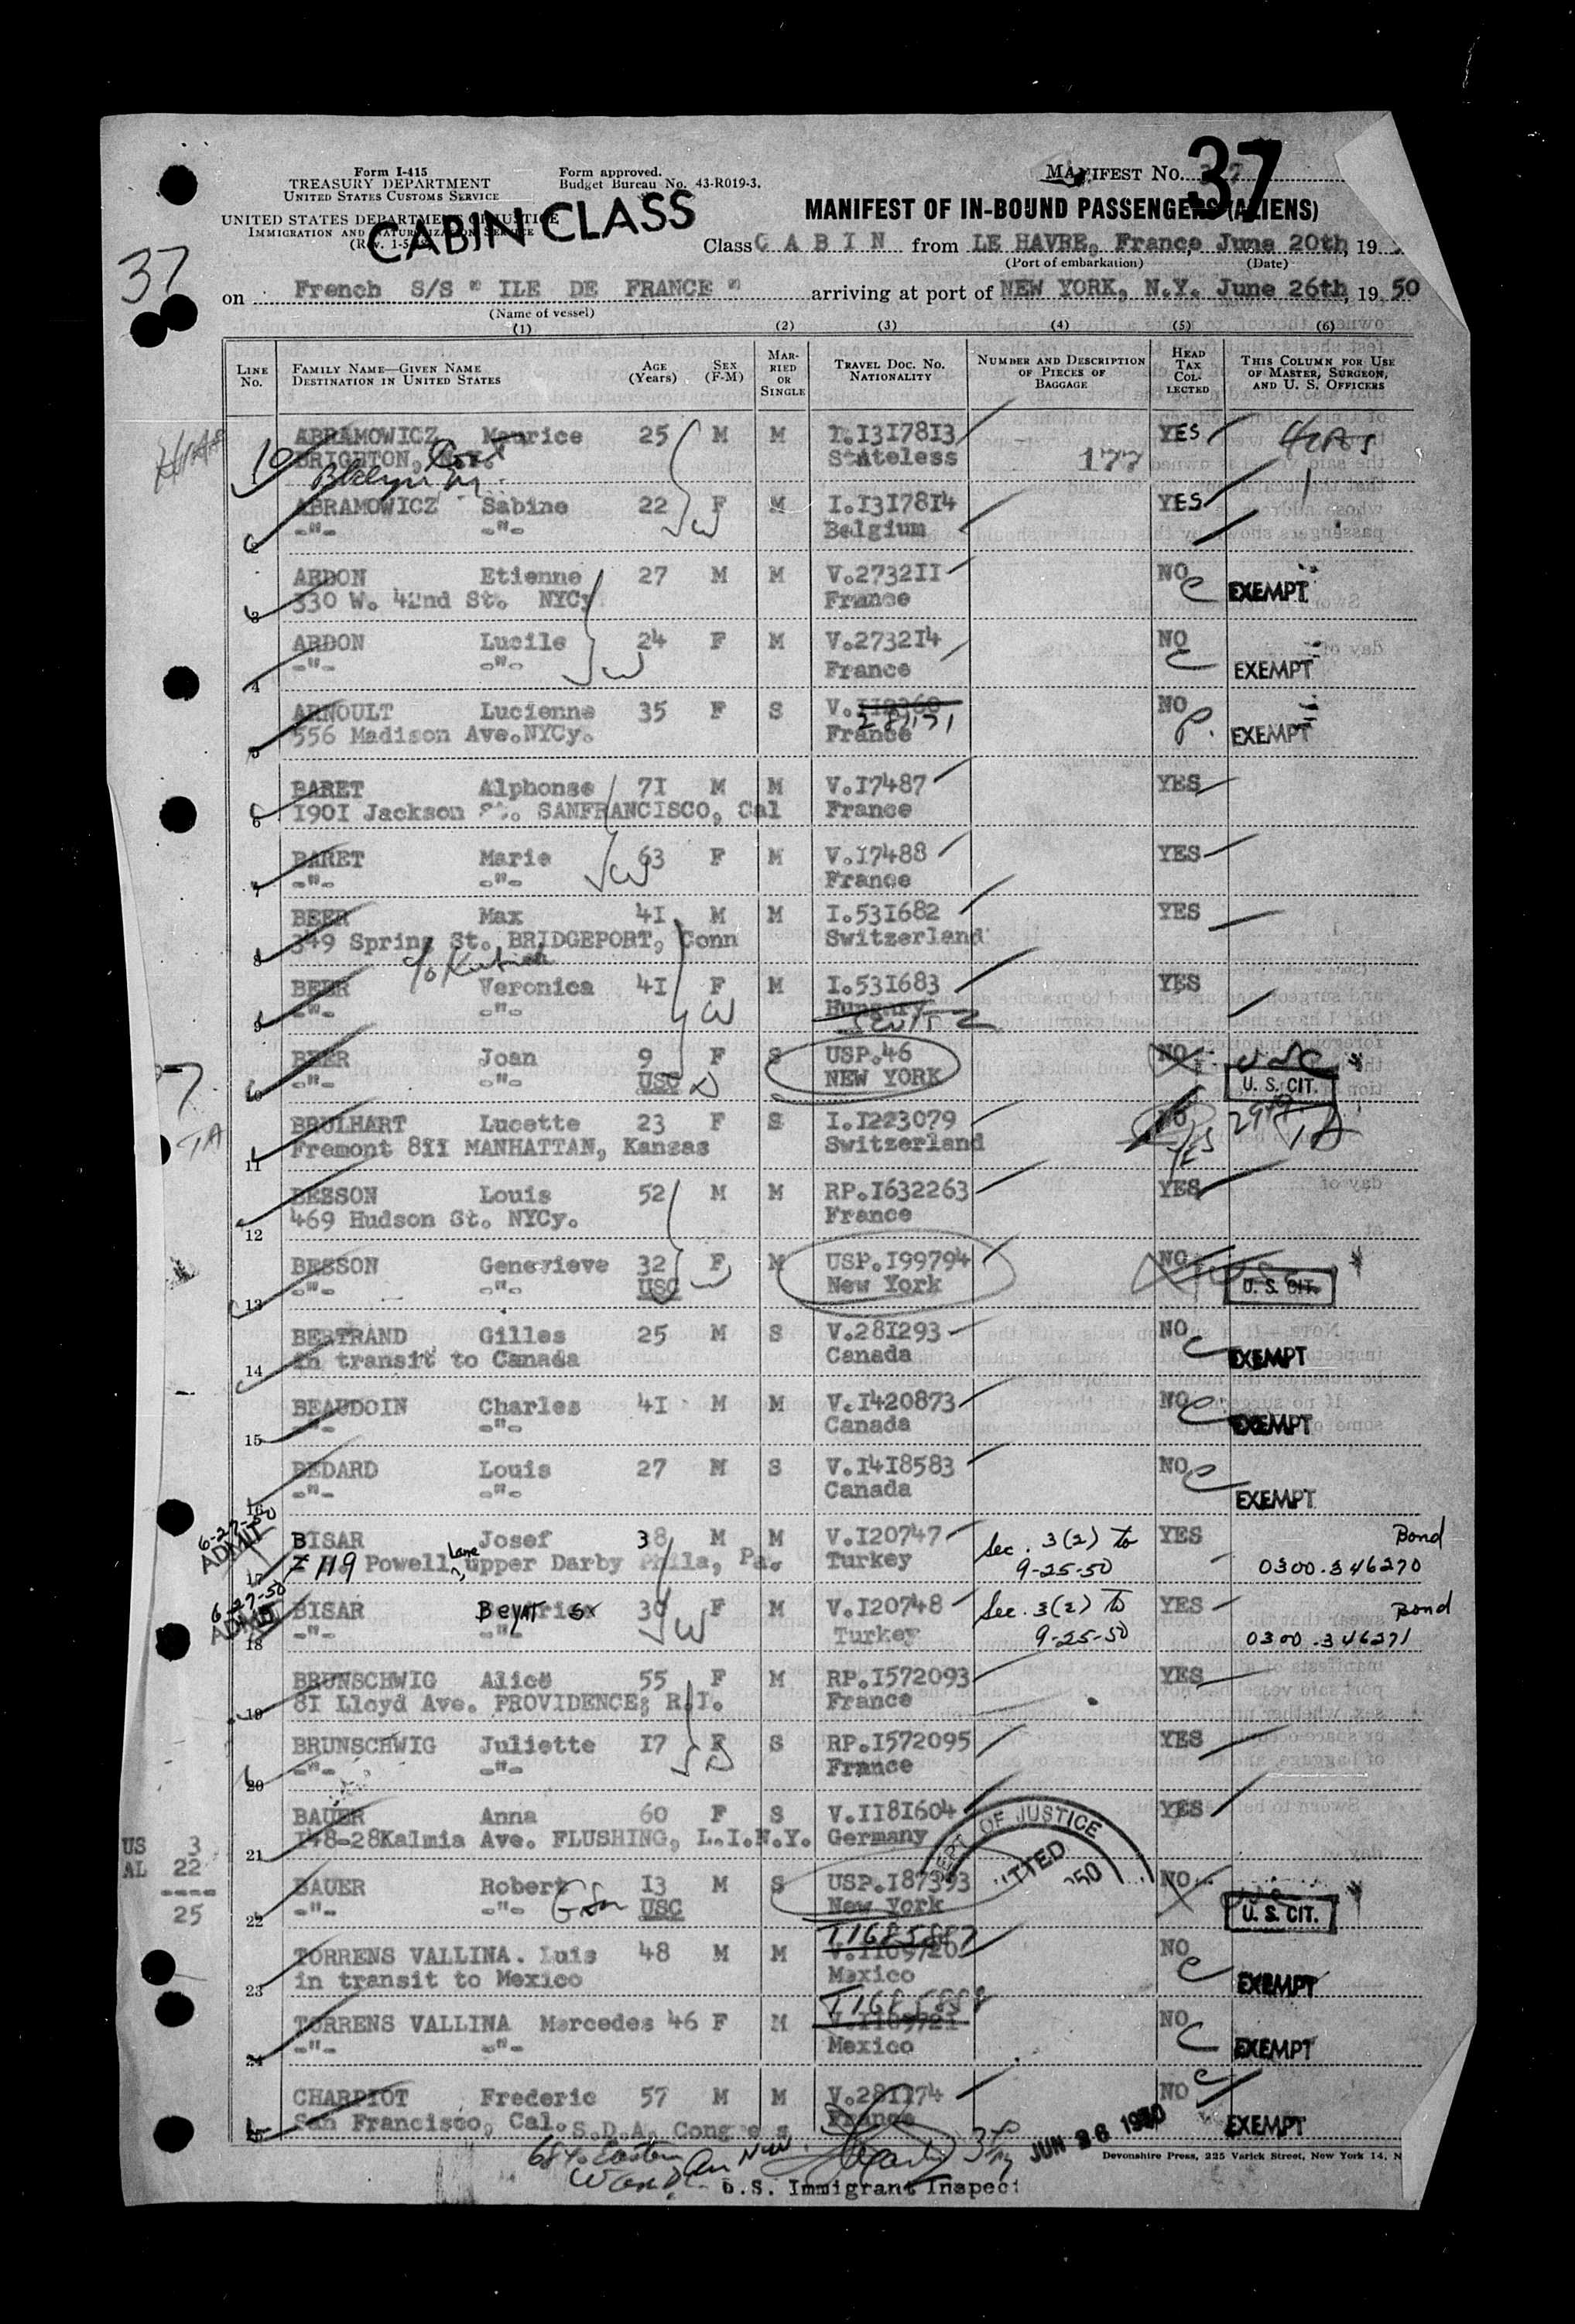 Form I-415
TREASURY DEPARTMENT
UNITED STATES CUSTOMS SERVICE
UNITED STATES DEPARTMENT OF JUSTICE
IMMIGRATION AND NATURALIZATION SERVICE
Form approved.
Budget Bureau No. 43-R019-3.
CABIN CLASS
MANIFEST NO. 37
37
MANIFEST OF IN-BOUND PASSENGERS (ALIENS)
Class C A B I N from LE HAVRE, France, June 20th, 19
(Port of embarkation) (Date)
on French S/S " ILE DE FRANCE " arriving at port of NEW YORK, N.Y. June 26th, 19 50
(Name of vessel)
(1) (2) (3) (4) (5) (6)
LINE No. FAMILY NAME—GIVEN NAME DESTINATION IN UNITED STATES AGE (Years) SEX (F-M) MARRIED OR SINGLE TRAVEL DOC. NO. NATIONALITY NUMBER AND DESCRIPTION OF PIECES OF BAGGAGE HEAD TAX COLLECTED THIS COLUMN FOR USE OF MASTER, SURGEON, AND U. S. OFFICERS
ABRAMOWICZ Maurice 25 M M I.I317813 YES
BRIGHTON, Stateless 177
2 ABRAMOWICZ Sabine 22 F M I.I317814 YES
-"- -"- Belgium
3 ARDON Etienne 27 M M V.2732II NO EXEMPT
330 W. 42nd St. NYCy France
4 ARDON Lucile 24 F M V.273214 NO EXEMPT
-"- -"- France
5 ARNOULT Lucienne 35 F S V. NO EXEMPT
556 Madison Ave.NYCy. France
6 BARET Alphonse 7I M M V.I7487 YES
I90I Jackson St. SANFRANCISCO, Cal France
7 BARET Marie 63 F M V.I7488 YES
-"- -"- France
8 BEER Max 4I M M I.531682 YES
349 Spring St. BRIDGEPORT, Conn Switzerland
9 BEER Veronica 4I F M I.531683 YES
-"- -"- Hungary SWITZ
10 BEER Joan 9 F S USP.46 NO USC
-"- -"- USC NEW YORK U. S. CIT.
TA
11 BRULHART Lucette 23 F S I.I223079 NO YES
Fremont 8II MANHATTAN, Kansas Switzerland
12 BESSON Louis 52 M M RP.I632263 YES
469 Hudson St. NYCy. France
13 BESSON Genevieve 32 F M USP.I99794 NO
-"- -"- USC New York U. S. CIT.
14 BERTRAND Gilles 25 M S V.28I293 NO
in transit to Canada Canada EXEMPT
15 BEAUDOIN Charles 4I M M V.I420873 NO
-"- -"- Canada EXEMPT
16 BEDARD Louis 27 M S V.I418583 NO
-"- -"- Canada EXEMPT
6-27-50 ADMIT
17 BISAR Josef 38 M M V.I20747 Sec. 3(2) to YES Bond
119 Powell Lane, upper Darby Phila, Pa. Turkey 9-25-50 0300.346270
6-27-50 ADMIT
18 BISAR BEYAT 30 F M V.I20748 Sec. 3(2) To YES Bond
-"- -"- Turkey 9-25-50 0300.346271
19 BRUNSCHWIG Alice 55 F M RP.I572093 YES
8I Lloyd Ave. PROVIDENCE; R.I. France
20 BRUNSCHWIG Juliette I7 F S RP.I572095 YES
-"- -"- France
21 BAUER Anna 60 F S V.II8I604 YES
I48-28Kalmia Ave. FLUSHING, L.I.N.Y. Germany
DEPT. OF JUSTICE
US 3
AL 22
----
25
22 BAUER Robert I3 M S USP.I87393 NO
-"- -"- USC New York U. S. CIT.
23 TORRENS VALLINA. Luis 48 M M V.II09720 NO
in transit to Mexico Mexico EXEMPT
24 TORRENS VALLINA Mercedes 46 F M V.II09721 NO
-"- -"- Mexico EXEMPT
25 CHARPIOT Frederic 57 M M V.28II74 NO
San Francisco, Cal. S.D.A. Congress France EXEMPT
JUN 26 1950
Devonshire Press, 225 Varick Street, New York 14, N
U.S. Immigrant Inspec